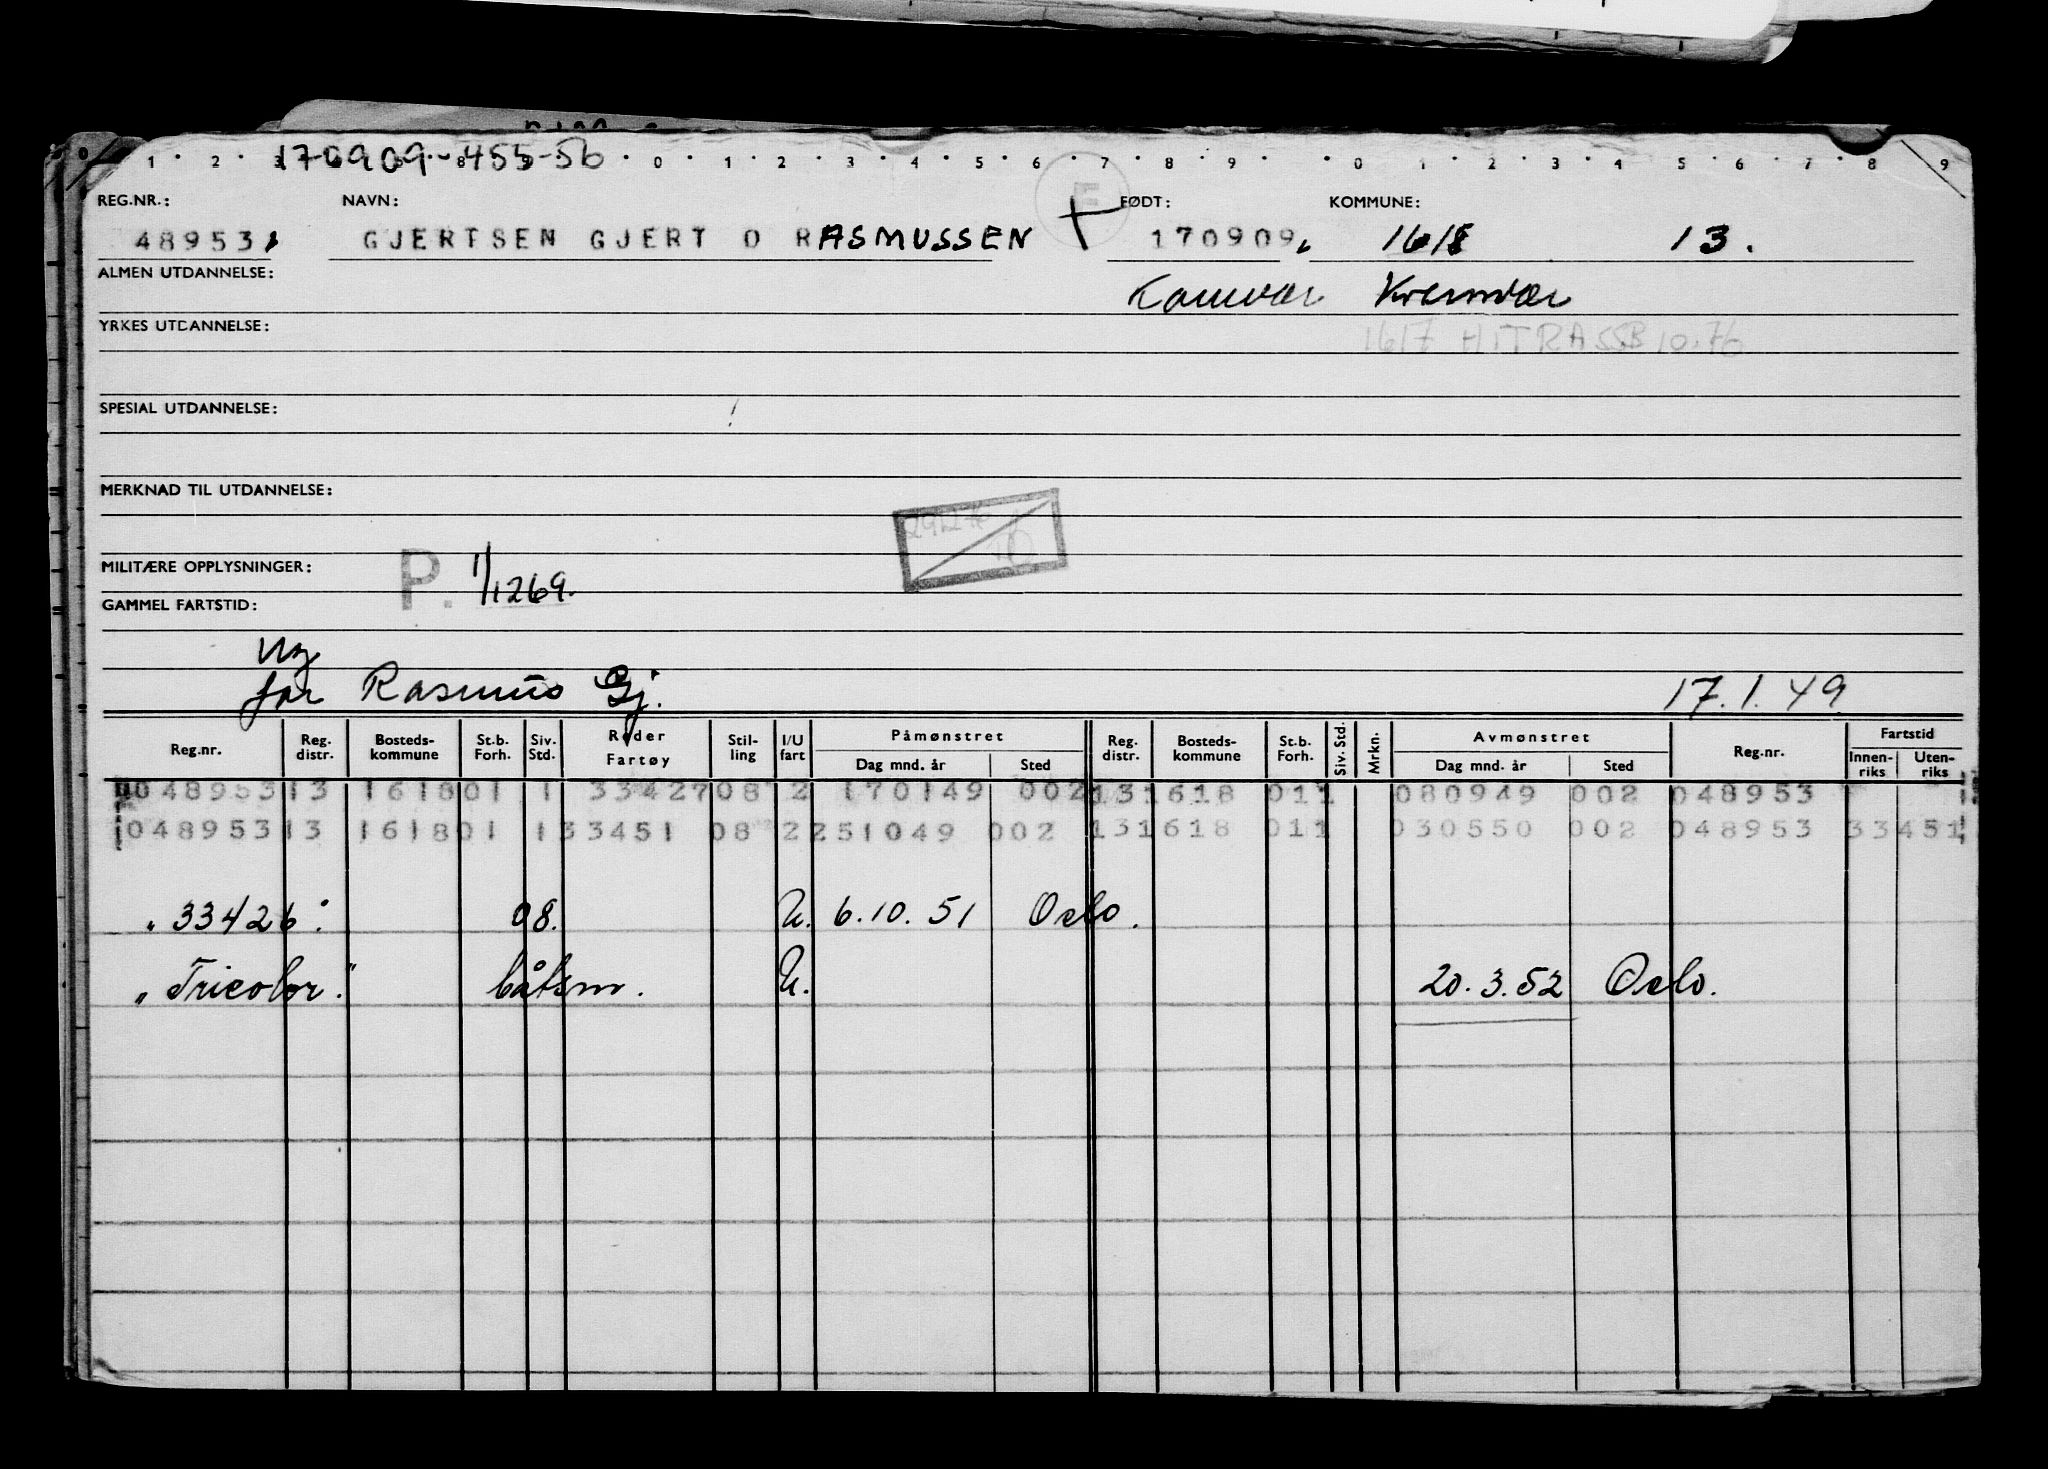 1 2 3 8 0 1 2 3 4 5 6 7 8 9 0 1 2 3 4 5 6 7 8 9
170909-455-56
REG.NR.: NAVN: E FØDT: KOMMUNE:
48953 GJERTSEN GJERT O RASMUSSEN 170909 1618 13.
ALMEN UTDANNELSE:
YRKES UTDANNELSE:
1617 HITRA SSB 10.76
SPESIAL UTDANNELSE:
MERKNAD TIL UTDANNELSE:
MILITÆRE OPPLYSNINGER: P. 1/1269.
GAMMEL FARTSTID:
Ny
far Rasmus Gj. 17.1.49
Reg.nr. Reg. distr. Bosteds- kommune St.b. Forh. Siv. Std. Reder Fartøy Stil- ling I/U fart Påmønstret Dag mnd. år Sted Reg. distr. Bosteds- kommune St.b. Forh. Siv. Std. Mrkn. Avmønstret Dag mnd. år Sted Reg.nr. Fartstid Innen- riks Uten- riks
048953 13 1618 01 1 33427 08 2 170149 002 13 1618 01 1 080949 002 048953
048953 13 1618 01 1 33451 08 2 251049 002 13 1618 01 1 030550 002 048953 33451
"33426" 08. U. 6.10.51 Oslo.
"Tricolor." båtsm. U. 20.3.52 Oslo.